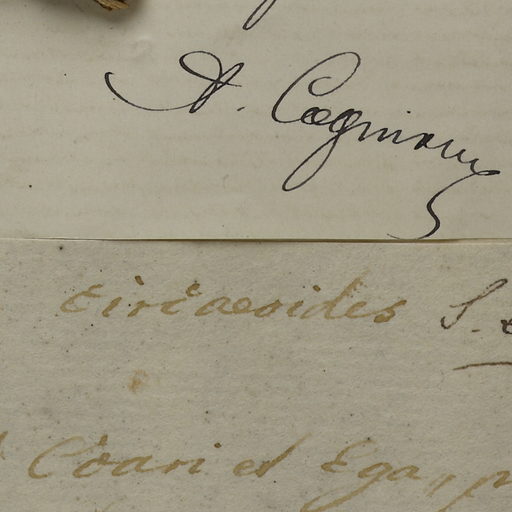 A. Cogniaux
circaeoides S.
Coari et Ega, p